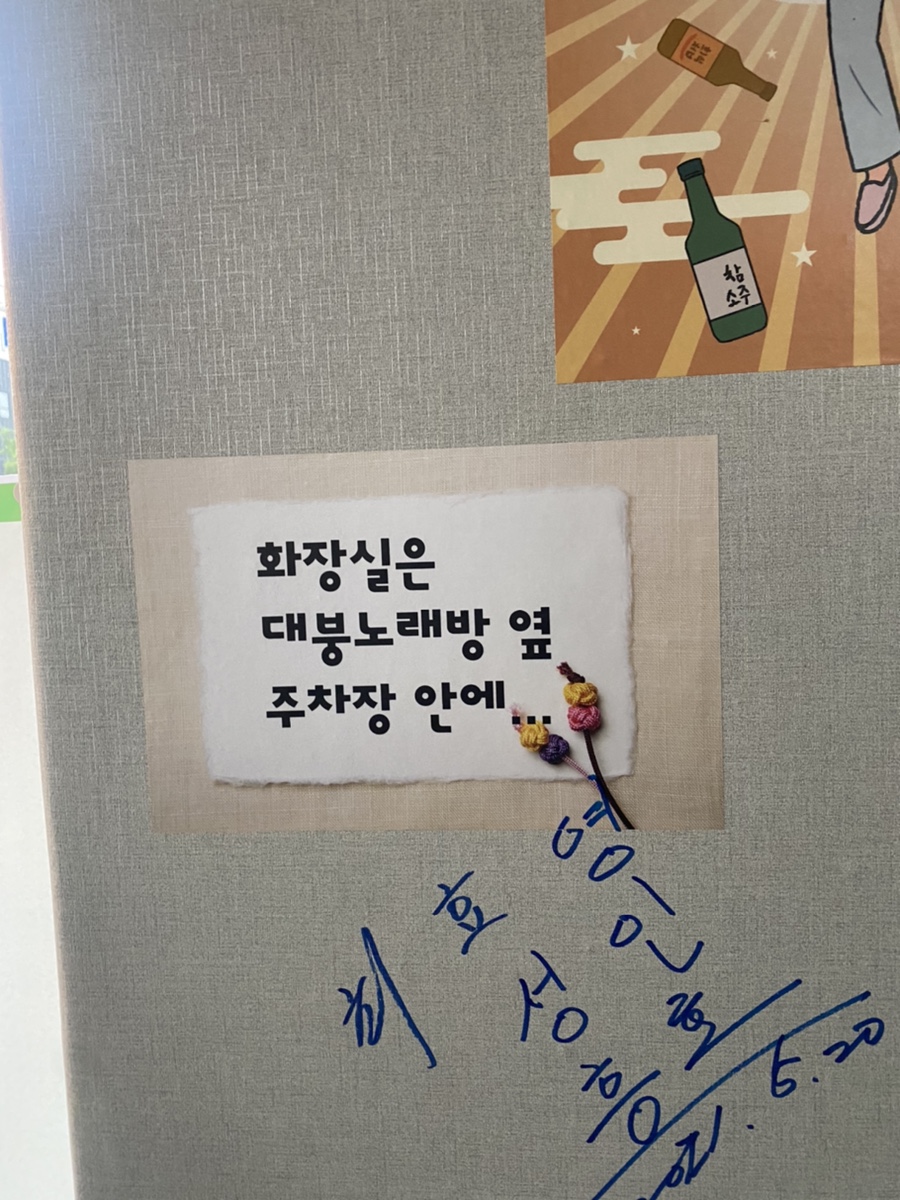 참
소주
화장실은
대붕노래방 옆
주차장 안에...
영인
효
성
흥
5.20